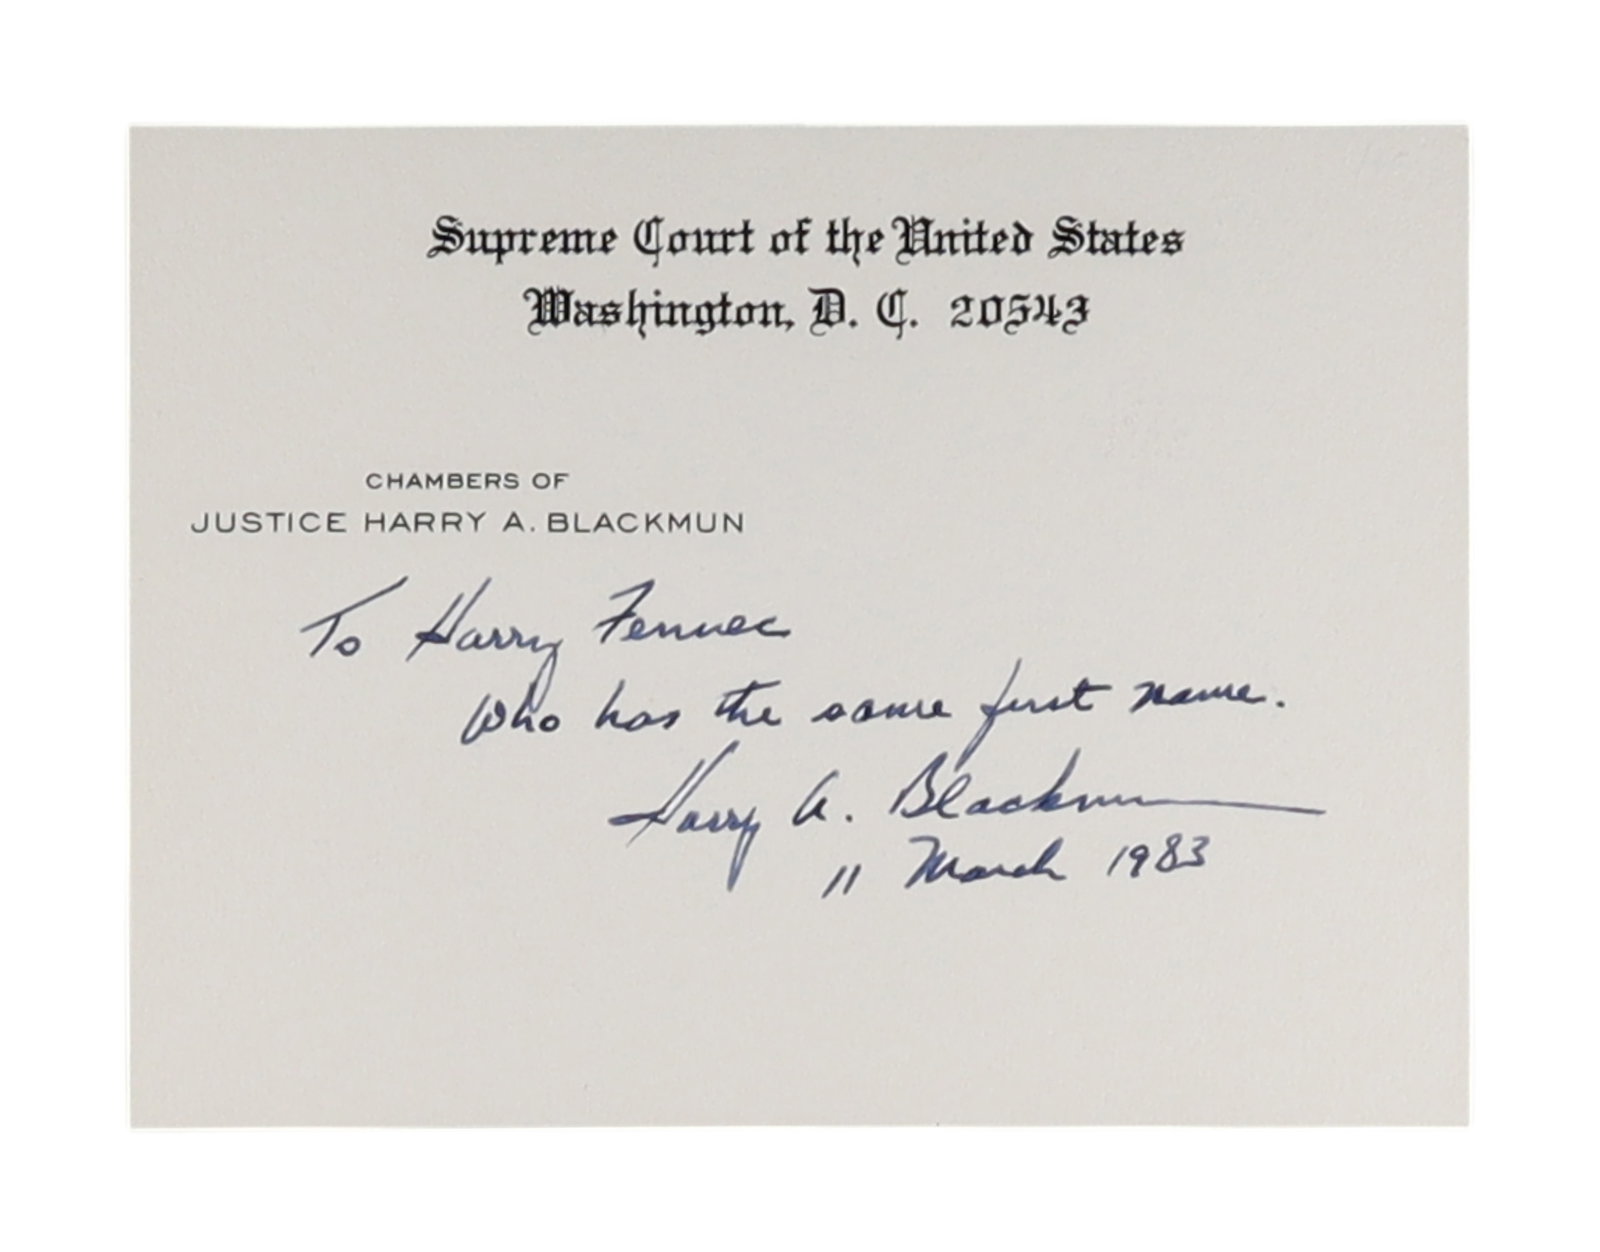 Supreme Court of the United States
Washington, D. C. 20543
CHAMBERS OF
JUSTICE HARRY A. BLACKMUN
To Harry Fennec
who has the same first name.
Harry A. Blackmun
11 March 1983